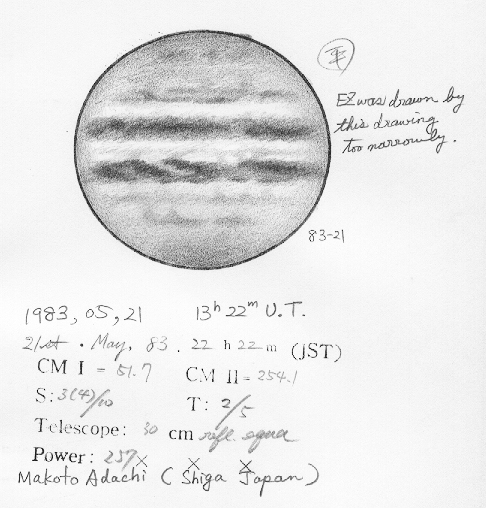 EZ was drawn by
this drawing
too narrowly.
83-21
1983, 05, 21 13h 22m U.T.
21st . May, 83 . 22 h 22 m (JST)
CM I = 51.7 CM II = 254.1
S: 3(4)/10 T: 2/5
Telescope: 30 cm refl. equa
Power: 257× × ×
Makoto Adachi (Shiga Japan)